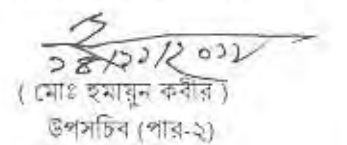 ২৪/১২/২০১২
( মোঃ হুমায়ুন কবীর )
উপসচিব (পার-২)